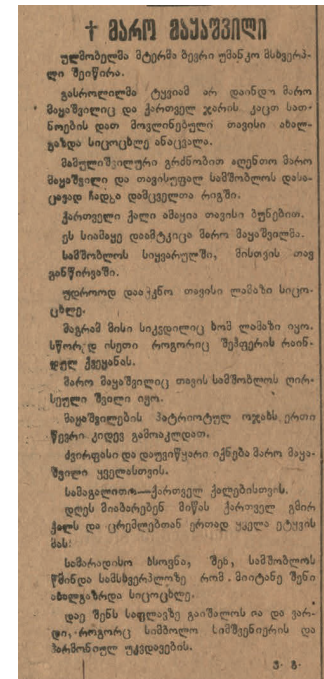 † მარო მაყაშვილი
ულმობელმა მტერმა ბევრი უმანკო მსხვერპ-
ლი შეიწირა.
გასროლილმა ტყვიამ არ დაინდო მარო
მაყაშვილიც და ქართველ ჯარის კაცთ სათ-
ნოების დათ მოვლინებული თავისი ახალ-
გაზდა სიცოცხლე ანაცვალა.
მამულიშვილური გრძნობით აღენთო მარო
მაყაშვილი და თავისუფალ სამშობლოს დასა-
ცავად ჩადგა დამცველთა რიგში.
ქართველი ქალი ამაყია თავისი ბუნებით.
ეს სიამაყე დაამტკიცა მარო მაყაშვილმა.
სამშობლოს სიყვარულში, მისთვის თავ
განწირვაში.
უდროოდ თავისი ლამაზი სიცო-
ცხლე.
მაგრამ მისი სიკვდილიც ხომ ლამაზი იყო.
სწორედ ისეთი როგორიც შეჰფერის რაინ-
დულ ქვეყანას.
მარო მაყაშვილიც თავის სამშობლოს ღირ-
სეული შვილი იყო.
მაყაშვილების პატრიოტულ ოჯახს ერთი
წევრი კიდევ გამოაკლდათ.
ძვირფასი და დაუვიწყარი იქნება მარო მაყა-
შვილი ყველასთვის.
სამაგალითო—ქართველ ქალებისთვის.
დღეს მიაბარებენ მიწას ქართველ გმირ
ქალს და ცრემლებთან ერთად ყველა ეტყვის
მას:
სამარადისო ხსოვნა, შენ, სამშობლოს
წმინდა სამსხვერპლოზე რომ მიიტანე შენი
ახალგაზრდა სიცოცხლე.
დაე შენს საფლავზე გაიშალოს ია და ვარ-
დი, როგორც სიმბოლო სიმშვენიერის და
ჰარმონიულ უკვდავების.
ვ. გ.